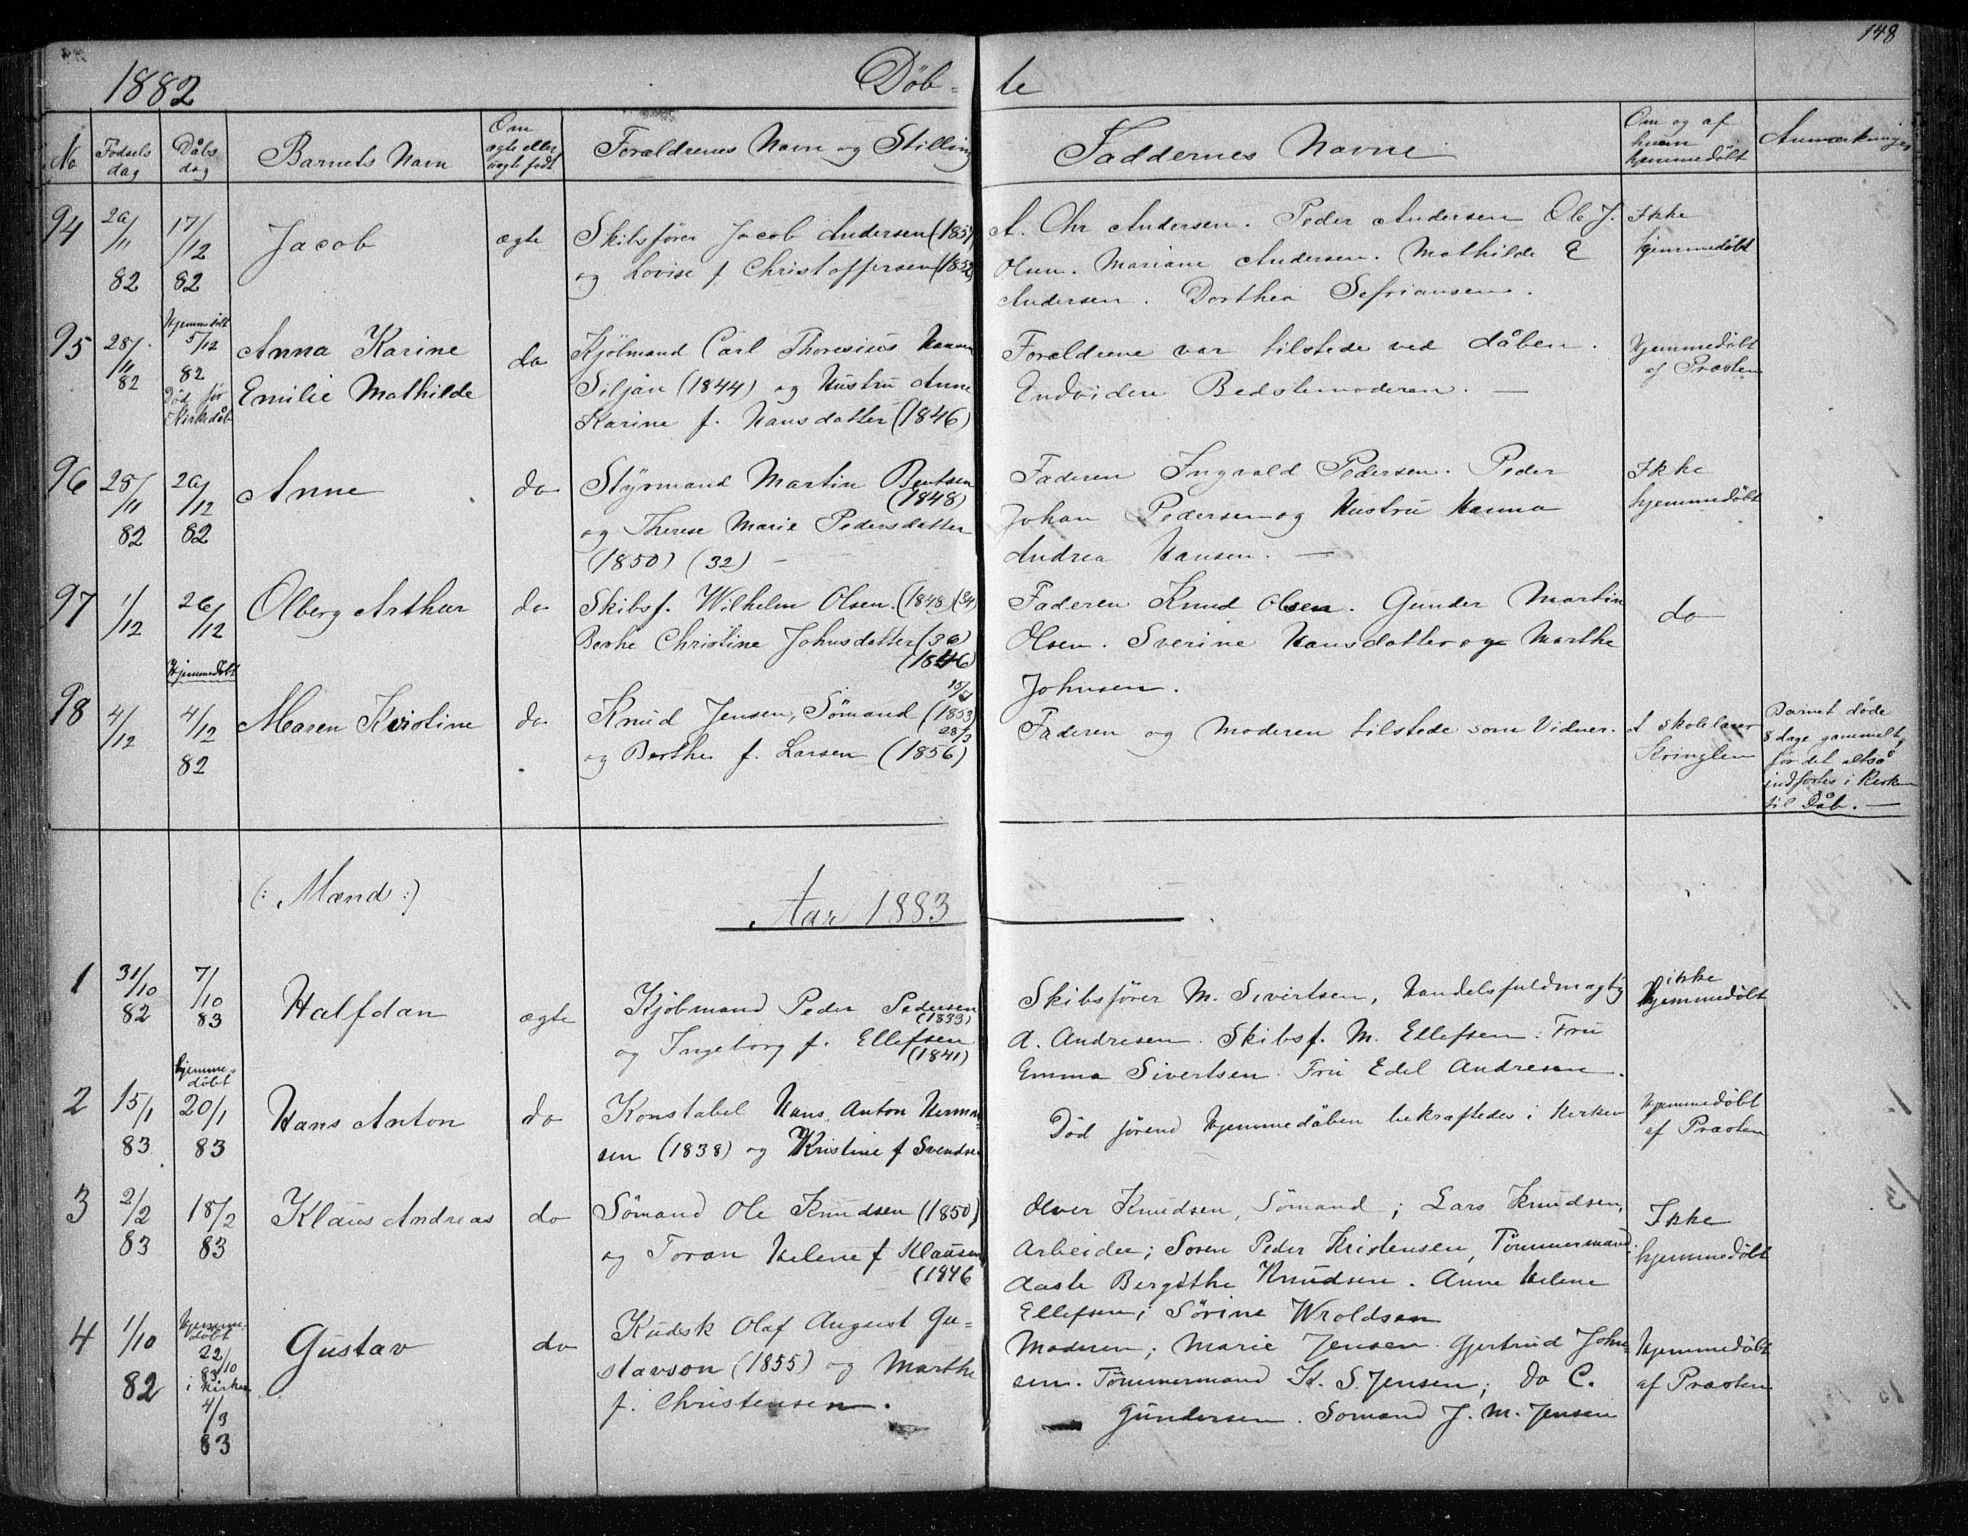 148
1882 Døb- te
No Fødsels dag Dåbs dag Barnets Navn Om ægte eller uægte født Forældrenes Navn og Stilling Faddernes Navne Om og af hvem hjemmedøbt Anmærkninger
94 26/11 82 17/12 82 Jacob ægte
Skibsfører Jacob Andersen (185
og Lovise f Christoffersen (1852
A. Chr Andersen. Peder Andersen Ole J.
Olsen. Mariane Andersen. Mathilde E
Andersen. Dorthea Sefriansen.
Ikke
hjemmedøbt
95 28/11 82 Hjemmedøbt 5/12 82 Død før Kirkedåb
Anna Karine
Emilie Mathilde
do
Kjøbmand Carl Thoresius
Siljan (1844) og Hustru Anne
Karine f. Hansdatter (1846)
Forældrene var tilstede ved dåben.
Endvidere Bedstemoderen. —
Hjemmedøbt
af Præsten
96 28/11 82 26/12 82 Anne do
Styrmand Martin Bentsen
(1848)
og Therese Marie Pedersdatter
(1850) (32) —
Faderen Ingvald Pedersen. Peder
Johan Pedersen og Hustru Hanna
Andrea Hansen. —
Ikke
hjemmedøbt
97 1/12 26/12 Olberg Arthur do
Skibsf. Wilhelm Olsen. (1848) (34)
Berthe Christine Johnsdatter (36)
(1846)
Faderen Knud Olsen. Gunder Martin
Olsen. Sverine Hansdatter og Marthe
Johnsen.
do
98 4/12 Hjemmedøbt 4/12 82 Maren Kristine do
Knud Jensen, Sømand (1853)
28/3
og Berthe f. Larsen (1856)
Faderen og Moderen tilstede som Vidner.
Af skolelærer
Kringlen
Barnet døde
8 dage gammelt,
før det altså
indførtes i Kirken
til Dåb. —
(: Mænd :)
Aar 1883
1 31/10 82 7/10 83 Halfdan ægte
Kjøbmand Peder Pedersen
(1833)
og Ingeborg f. Ellefsen
(1841)
Skibsfører M. Sivertsen, Handelsfuldmægtig
A. Andresen. Skibsf. M. Ellefsen. Fru
Emma Sivertsen. Fru Edel Andresen.
ikke
hjemmedøbt
2 15/1 83 hjemme-
døbt
20/1 83 Hans Anton do
Konstabel Hans Anton Herman-
sen (1838) og Kristine f Svendsen
Død førend Hjemmedåben bekræftedes i Kirken
Hjemmedøbt
af Præsten
3 2/2 83 18/2 83 Klaus Andreas do
Sømand Ole Knudsen (1850)
og Toran Helene f Klausen
(1846
Olver Knudsen, Sømand; Lars Knudsen,
Arbeider; Soren Peder Kristensen, Tømmermand.
Aaste Bergithe Knudsen. Anne Helene
Ellefsen; Sørine Wroldsen
Ikke
hjemmedøbt
4 1/10 82 Hjemme-
døbt
22/10
83
i Kirken
4/3
83
Gustav do
Kudsk Olaf August Gu-
stavson (1855) og Marthe
f. Christensen.
Moderen; Marie Jensen. Gjertrud John-
sen. Tømmermand K. S. Jensen; Do C.
Gundersen. Sømand J. M. Jensen
Hjemmedøbt
af Præsten